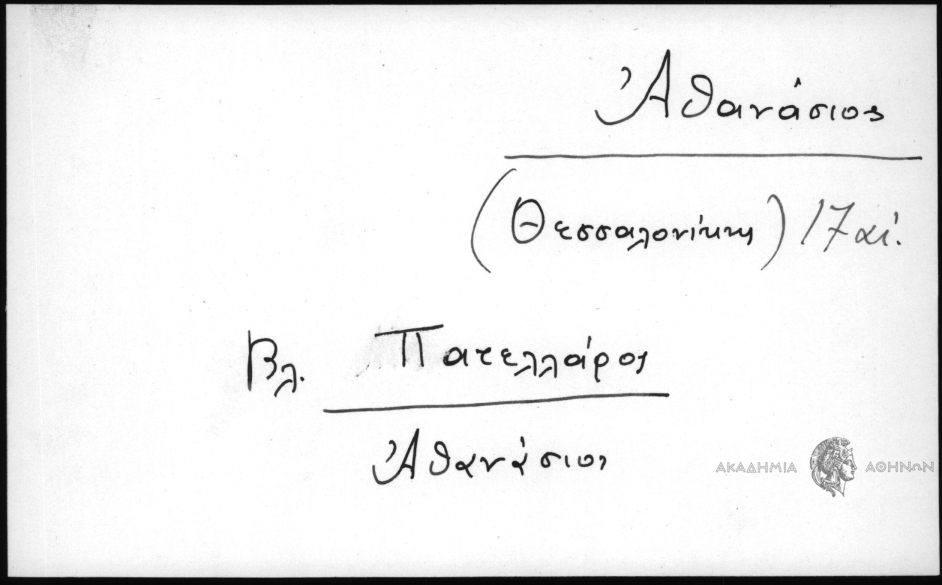 Ἀθανάσιος
(Θεσσαλονίκης) 17 αἰ.
Βλ. Πατελλάρος
Ἀθανάσιος
ΑΚΑΔΗΜΙΑ ΑΘΗΝΩΝ